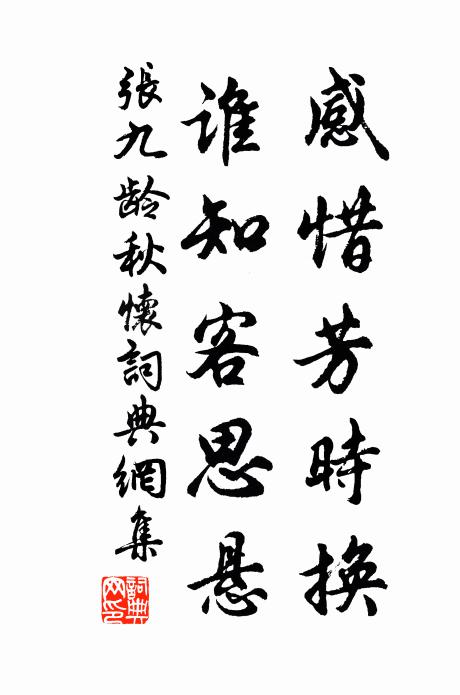 感惜芳時換
誰知客思悬
張九龄秋懷詞典網集
詞典網印